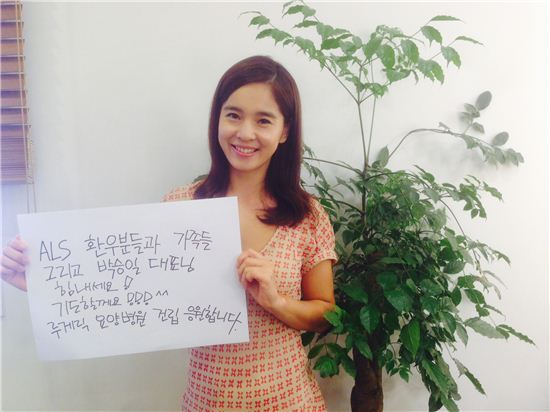 ALS 환우분들과 가족들
그리고 박승일 대표님
힘내세요!
기도할게요 ^^
루게릭 요양병원 건립 응원합니다.